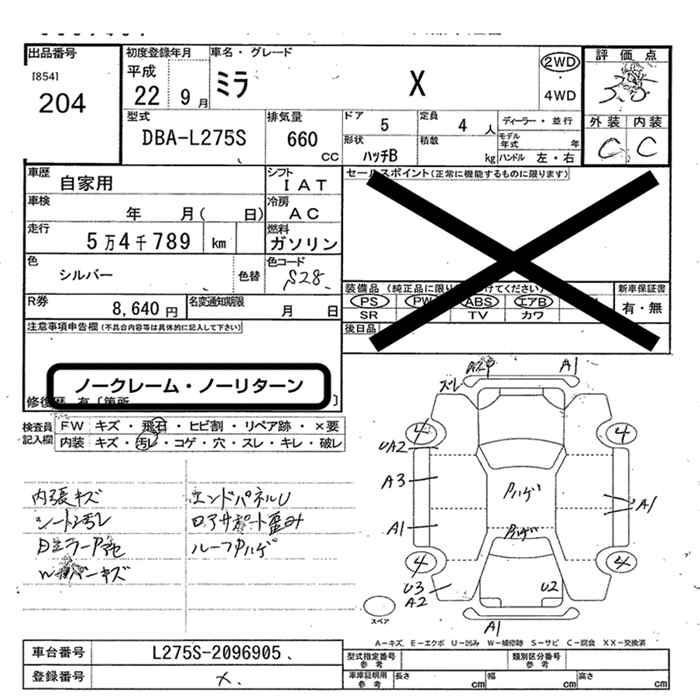 出品番号
[854]
204
初度登録年月
平成
22 9 月
車名・グレード
ミラ X
2WD
・
4WD
評価点
3.5
外装 内装
C C
型式
DBA-L275S
排気量
660
CC
ドア 5
定員 4 人
ディーラー・並行
形状
ハッチB
積数
kg
モデル年式 年
ハンドル 左・右
車歴
自家用
シフト
IAT
セールスポイント(正常に機能するものに限ります)
車検
年 月( 日)
冷房
AC
走行
5万4千789 km
燃料
ガソリン
色
シルバー
色替
色コード
S28
装備品(純正品に限り
けてください)
PS PW ABS エアB
SR TV カワ
新車保証書
有・無
R券
8,640 円
名変通知期限
月 日
後日品
注意事項申告欄(不具合内容等は具体的に記入して下さい)
ノークレーム・ノーリターン
修復歴 有〔箇所 〕
検査員記入欄
FW キズ・飛石・ヒビ割・リペア跡・×要
内装 キズ・汚レ・コゲ・穴・スレ・キレ・破レ
内張キズ
シート汚レ
エンドパネルU
ロアサポート歪み
ルーフハゲ
ズレ
A1
4
4
UA2
A3
A1
A1
ハゲ
4
4
U3
A2
U2
A1
スペア
A-キズ E-エクボ U-凹み W-補修跡 S-サビ C-腐食 XX-交換済
車台番号
L275S-2096905
登録番号
×
型式指定番号
参考
類別区分番号
参考
車庫証明用
参考
長さ cm
幅 cm
高さ cm